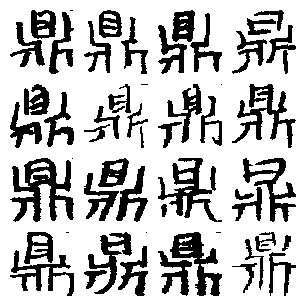 鼎鼎鼎鼎
鼎鼎鼎鼎
鼎鼎鼎鼎
鼎鼎鼎鼎